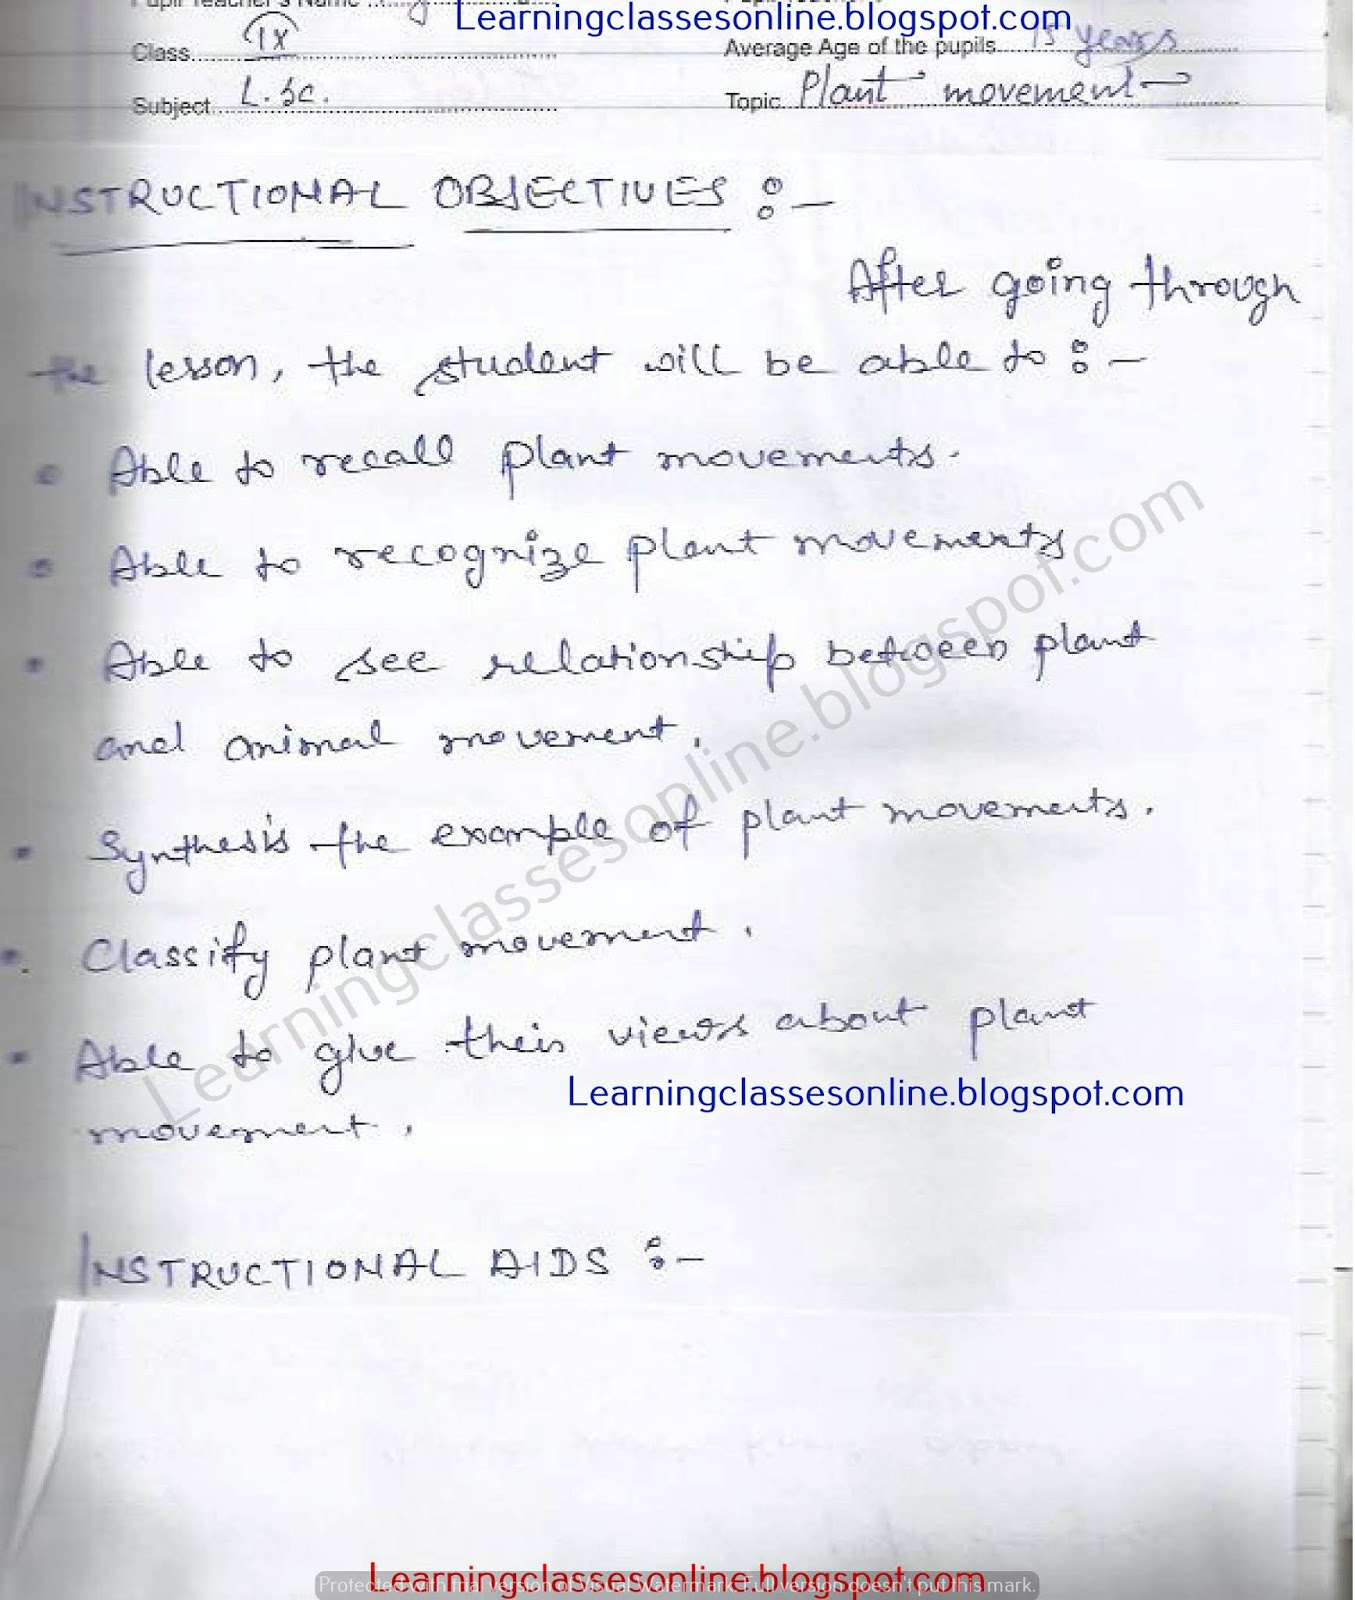 Learningclassesonline.blogspot.com
Class IX Average Age of the pupils 15 years
Subject L. Sc. Topic Plant movement
INSTRUCTIONAL OBJECTIVES :-
After going through
the lesson, the student will be able to :-
Able to recall plant movements.
Able to recognize plant movements
Able to see relationship between plant
and animal movement.
Synthesis the example of plant movements.
Classify plant movement.
Able to give their views about plant
Learningclassesonline.blogspot.com
movement.
Learningclassesonline.blogspot.com
INSTRUCTIONAL AIDS :-
Learningclassesonline.blogspot.com
Protected with trial version of Visual Watermark. Full version doesn't put this mark.